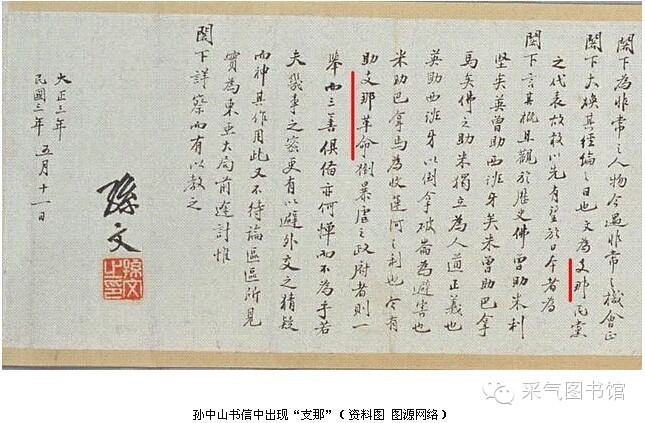 閣下為非常之人物今遇非常之機會正
閣下大煥其經綸之日也文為支那民黨
之代表故敢以先有望於日本者為
閣下言其概且觀於歷史佛曾助米利
堅矣英曾助西班牙矣米曾助巴拿
馬矣佛之助米獨立為人道正義也
英助西班牙以倒拿破崙為避害也
米助巴拿馬為收運河之利也今有
助支那革命倒暴虐之政府者則一
舉而三善俱備亦何憚而不為乎若
夫幾事之密更有以避外交之猜疑
而神其作用此又不待論區區所見
實為東亞大局前途計惟
閣下詳察而有以教之
孫文
孫文之印
大正三年
民國三年 五月十一日
采气图书馆
孙中山书信中出现“支那”（资料图 图源网络）